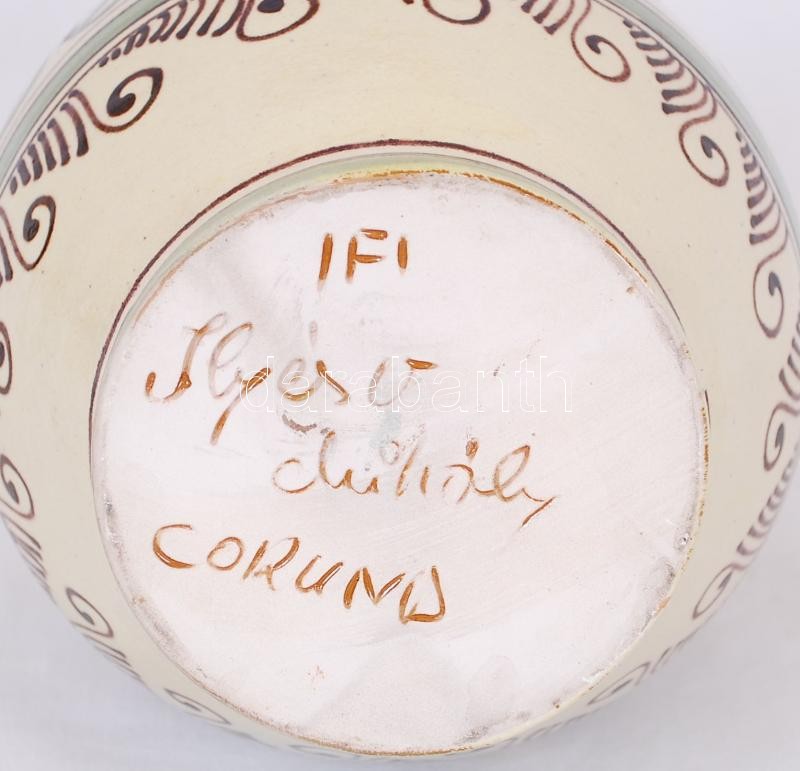 IFI
Ilyés
darabanth
Mihály
CORUND